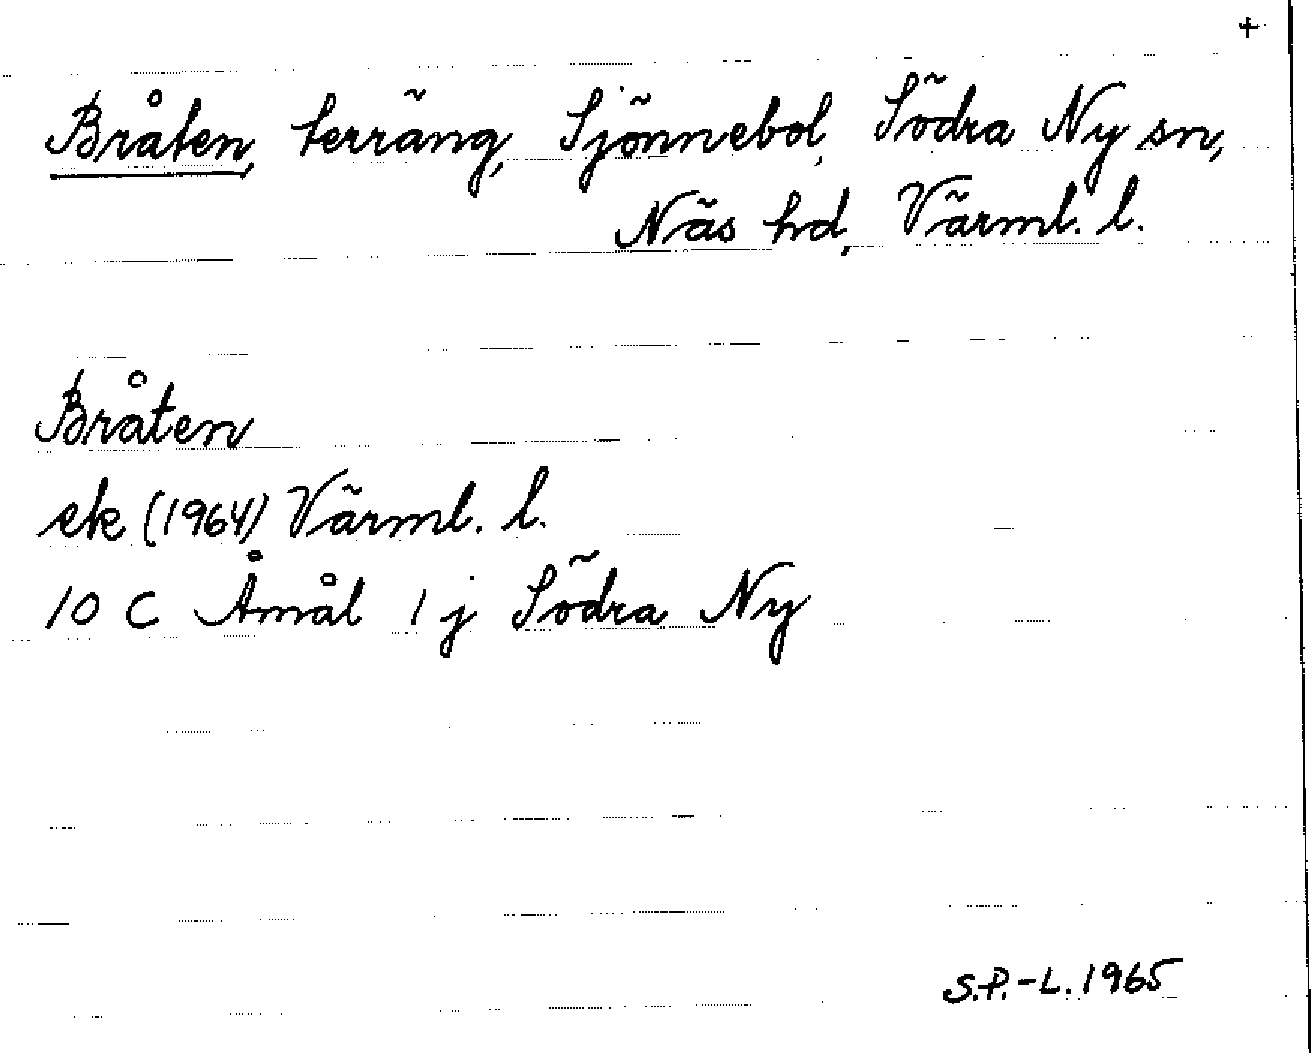 +
Bråten, terräng, Sjönnebol, Södra Ny sn,
Näs hd, Värml. l.
Bråten
ek (1964) Värml. l.
10 C Åmål 1 j Södra Ny
S.P.-L. 1965